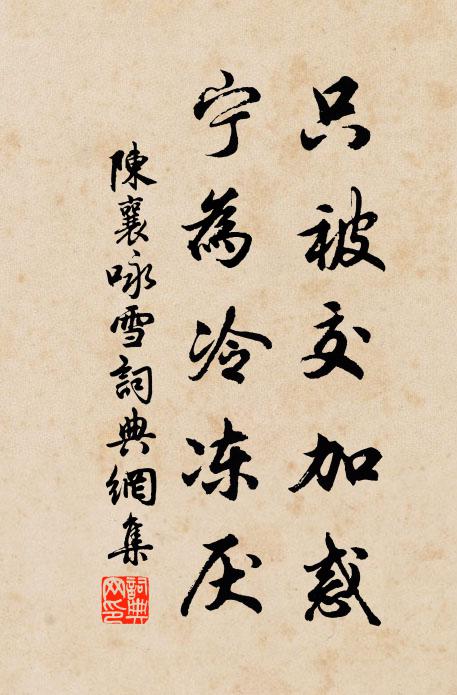 只被交加惑
宁為冷冻厌
陳襄咏雪詞典網集
詞典
网印